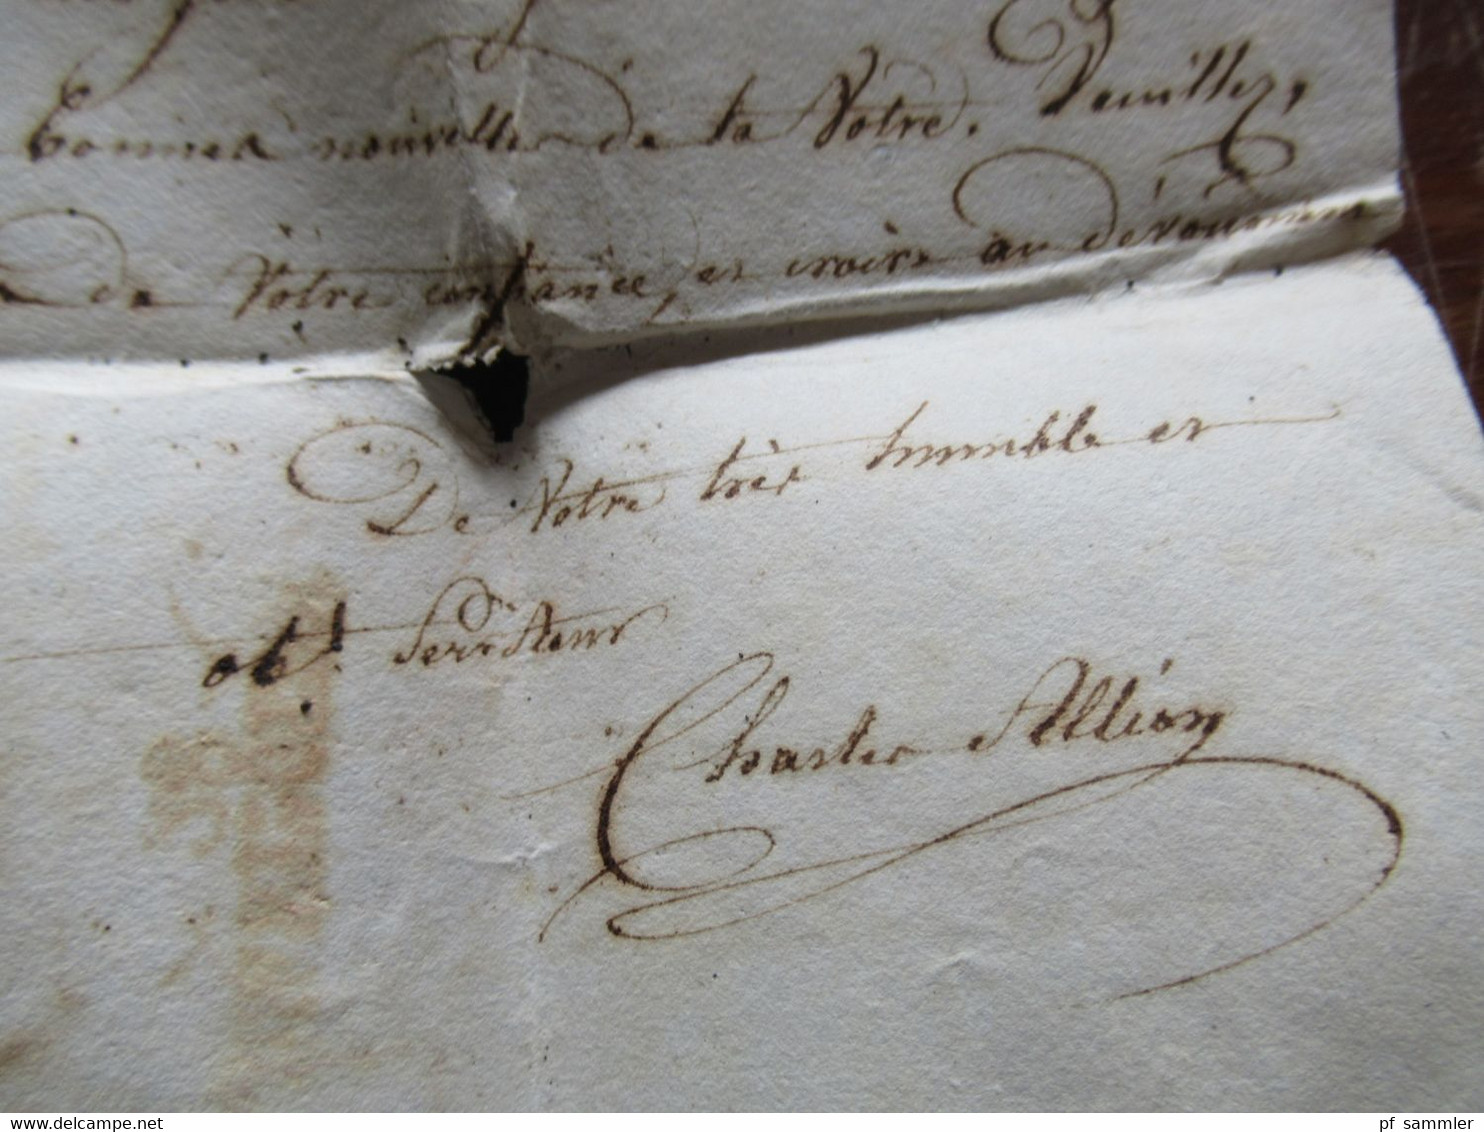 bonnes nouvelles de la Vôtre. Veuillez,
de Votre confiance, et croire au dévoument
De Votre très humble et
obt. Serviteur
Charles Allion
pf_sammler
www.delcampe.net